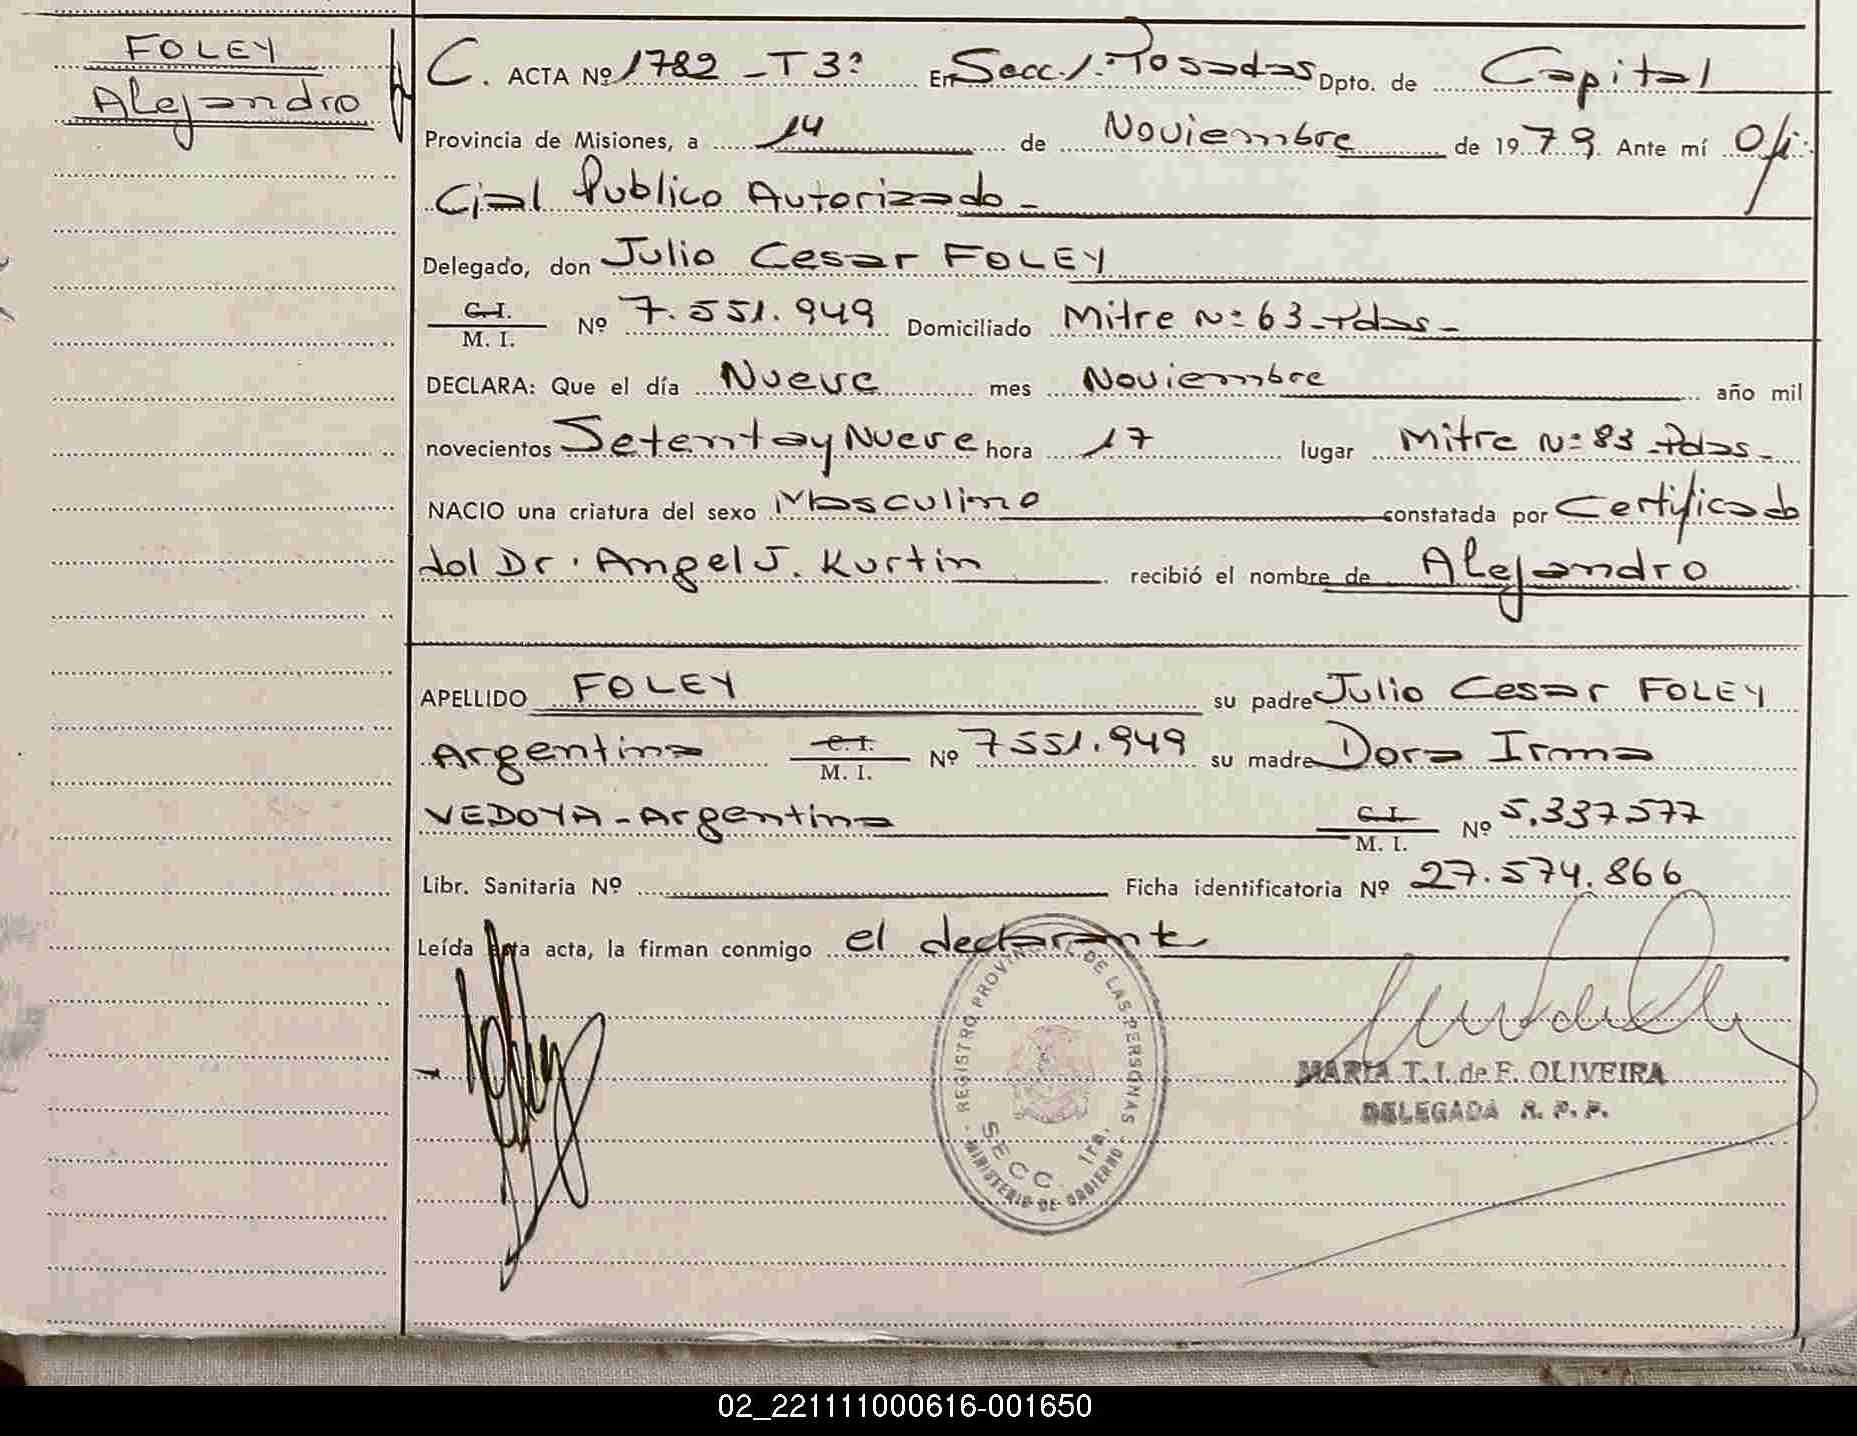 FOLEY
Alejandro
C. ACTA Nº 1782 - T 3º En Secc. 1. Posadas Dpto. de Capital
Provincia de Misiones, a 14 de Noviembre de 1979. Ante mí Ofi-
cial Publico Autorizado -
Delegado, don Julio Cesar FOLEY
C. I.
M. I. Nº 7.551.949 Domiciliado Mitre Nº 63 - Pdas -
DECLARA: Que el día Nueve mes Noviembre año mil
novecientos Setenta y Nueve hora 17 lugar Mitre Nº 83 - Pdas -
NACIO una criatura del sexo Masculino constatada por Certificado
del Dr. Angel J. Kurtin recibió el nombre de Alejandro
APELLIDO FOLEY su padre Julio Cesar FOLEY
Argentina C. I.
M. I. Nº 7551.949 su madre Dora Irma
VEDOYA - Argentina C. I.
M. I. Nº 5.337.577
Libr. Sanitaria Nº Ficha identificatoria Nº 27.574.866
Leída esta acta, la firman conmigo el declarante
- REGISTRO PROVINCIAL DE LAS PERSONAS -
SECC. 1ra.
MINISTERIO DE GOBIERNO
MARIA T. I. de F. OLIVEIRA
DELEGADA R. P. P.
02_221111000616-001650